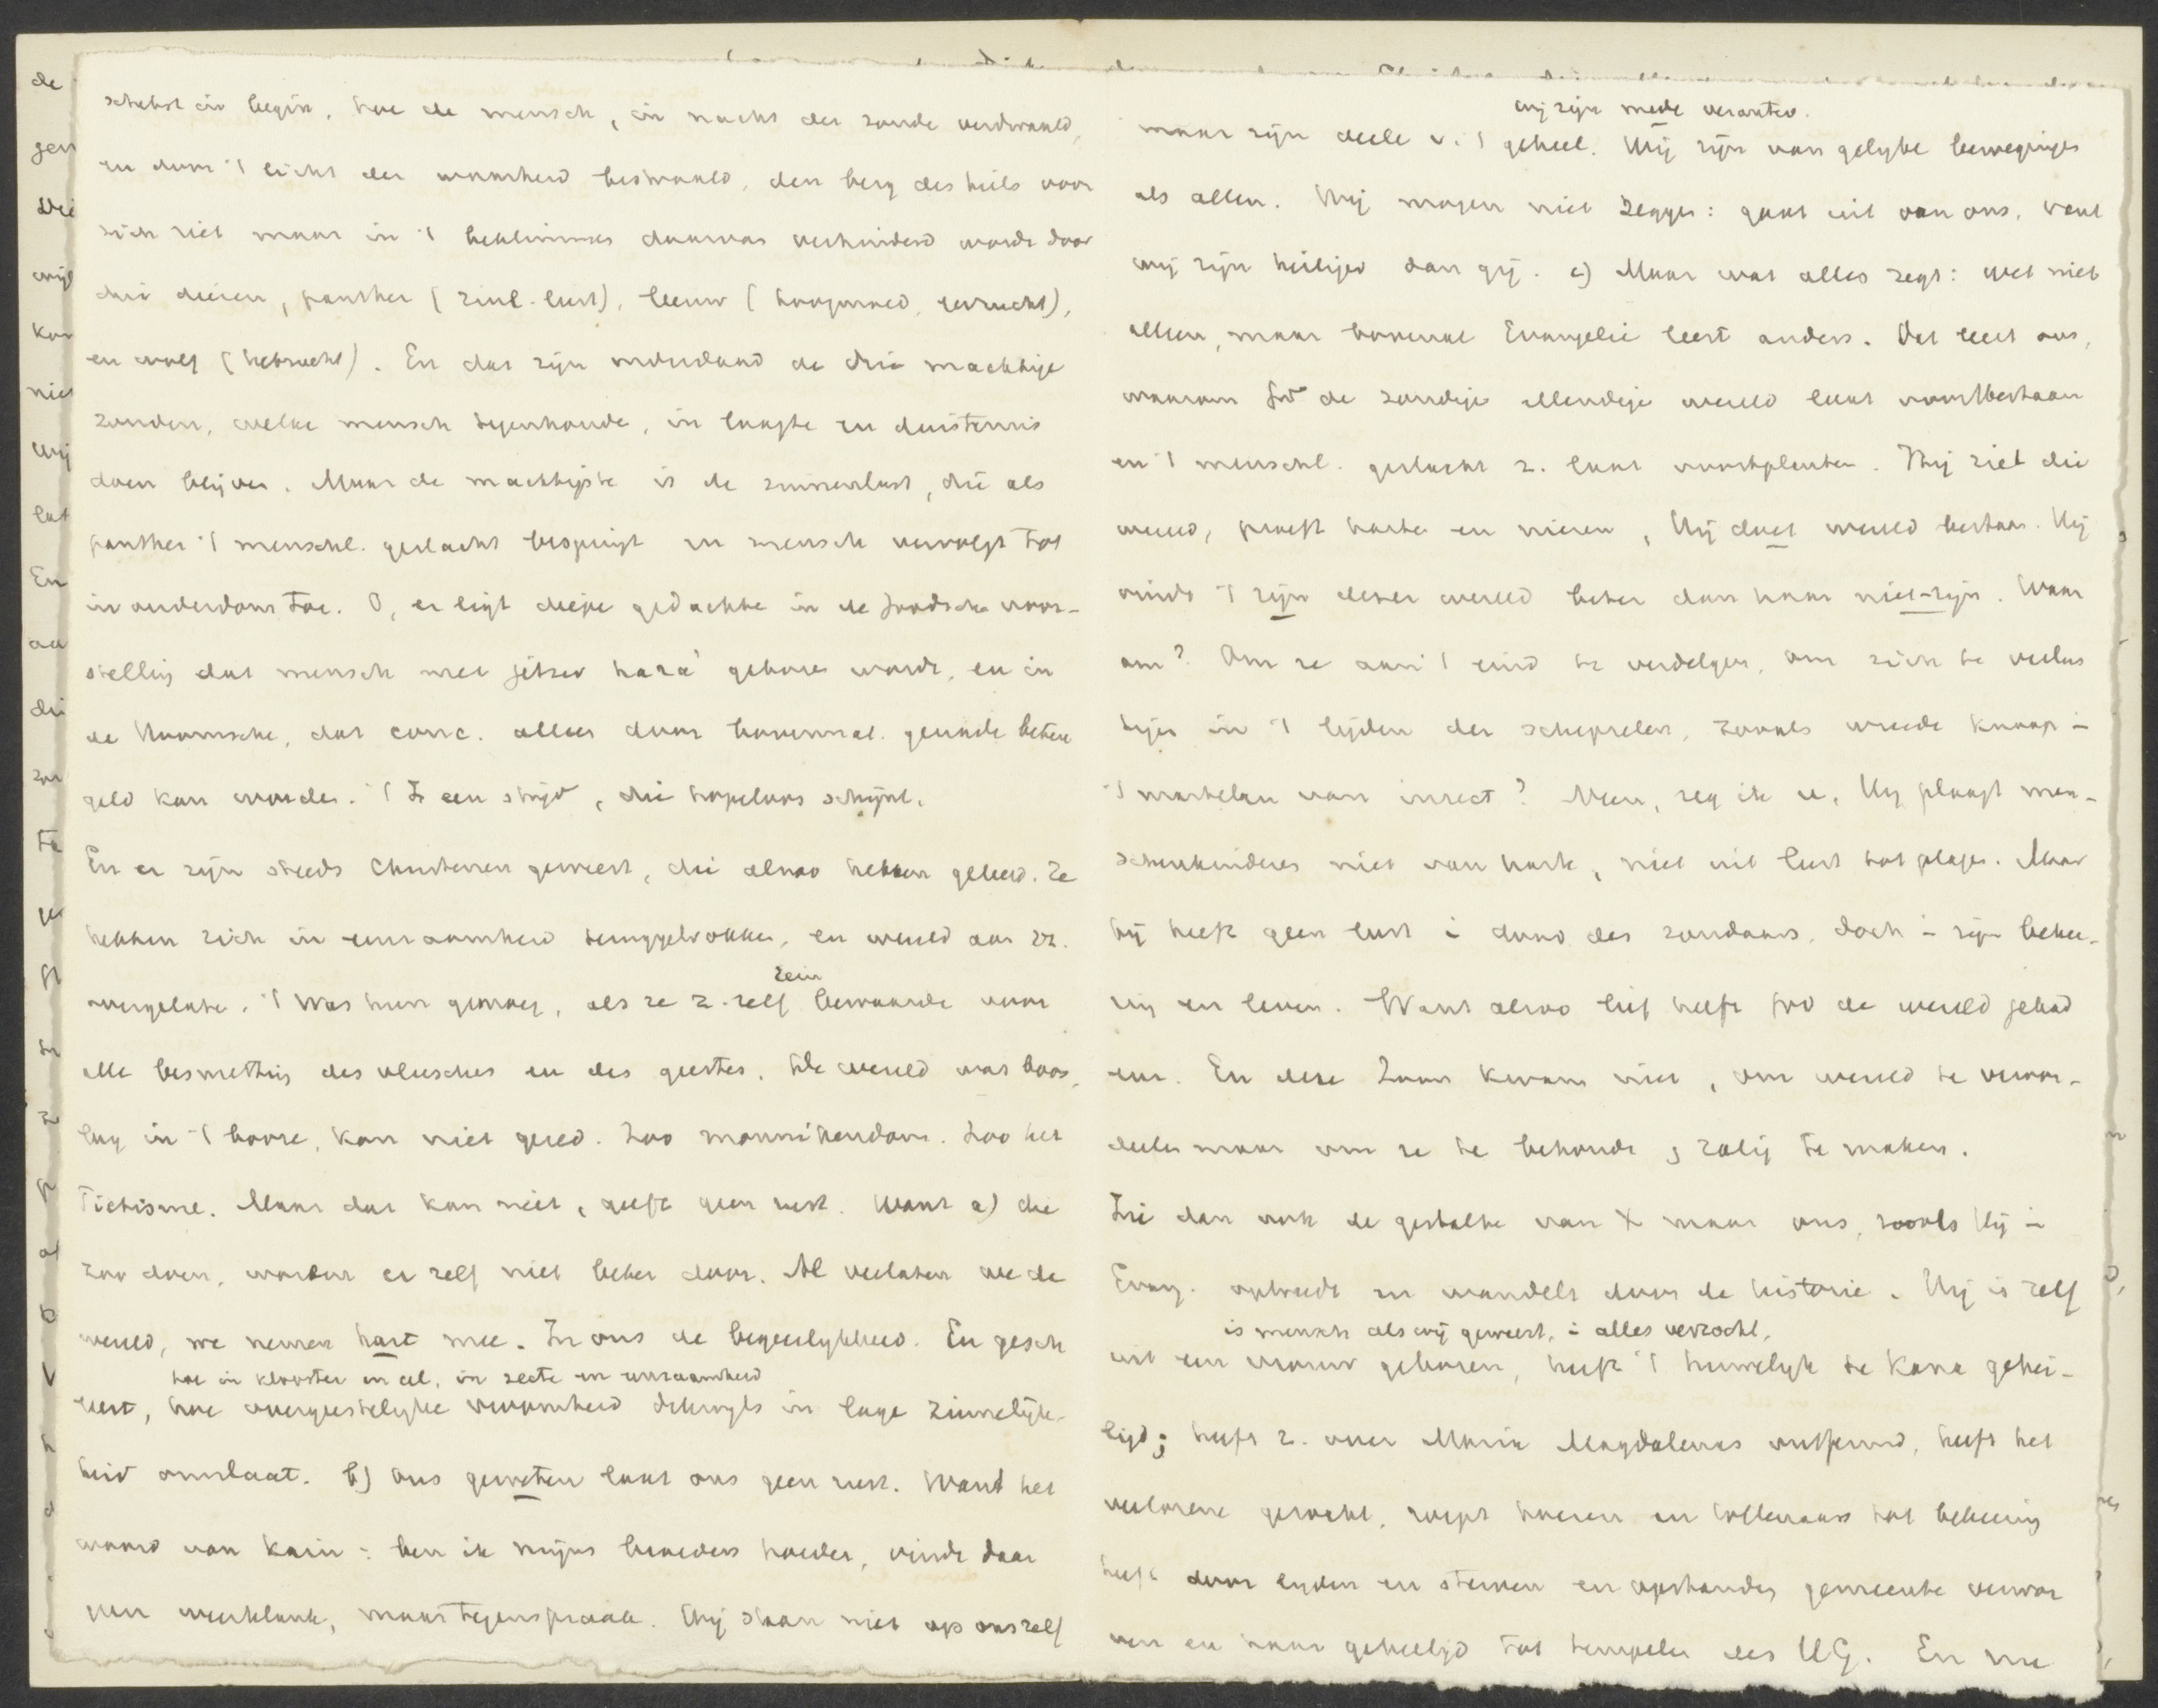 schetst in begin, hoe de mensch, in nacht der zonde verdwaald,
en door 't licht der waarheid bestraald, den berg des heils voor
zich ziet maar in 't beklimmen daarvan verhinderd wordt door
drie dieren, panther (zinl. lust), leeuw (hoogmoed, eerzucht),
en wolf (hebzucht). En dat zijn inderdaad de drie machtige
zonden, welke mensch tegenhoude, in laagte en duisternis
doen blijven. Maar de machtigste is de zinnenlust, die als
panther 't menschl. geslacht bespringt en mensch vervolgt tot
in ouderdom toe. O, er ligt diepe gedachte in de Joodsche voor-
stelling dat mensch met jetser hara' geboren wordt, en in
de Roomsche, dat conc. alleen door bovennat. genade beteu
geld kan worden. 't Is een strijd, die hopeloos schijnt.
En er zijn steeds Christenen geweest, die alzoo hebben geleerd. Ze
hebben zich in eenzaamheid teruggetrokken, en wereld aan zz.
overgelaten. 't Was hun genoeg, als ze z. zelf rein bewaarde voor
alle besmetting des vleesches en des geestes. De wereld was boos,
lag in 't booze, kan niet gered. Zoo monnikendom. Zoo het
Piëtisme. Maar dat kan niet, geeft geen rust. Want a) die
zoo doen, worden er zelf niet beter door. Al verlaten we de
wereld, we nemen hart mee. In ons de begeerlykheid. En gesch
hoe in klooster en cel, in secte en eenzaamheid
leert, hoe overgeestelijke vroomheid dikwijls in lage zinnelijk-
heid omslaat. b) Ons geweten laat ons geen rust. Want het
woord van Kaïn: ben ik mijns broeders hoeder, vindt daar
geen weerklank, maar tegenspraak. Wij staan niet op ons zelf
wij zijn mede verantw.
maar zijn deele v. 't geheel. Wij zijn van gelijke bewegingen
als allen. Wij mogen niet zeggen: gaat uit van ons, want
wij zijn heiliger dan gij. c) Maar wat alles zegt: wet niet
alleen, maar bovenal Evangelie leert anders. Dat leert ons,
waarom God de zondige ellendige wereld laat voortbestaan
en 't menschl. geslacht z. laat voortplanten. Hij ziet die
wereld, proeft harten en nieren, Hij doet wereld bestaan. Hij
vindt 't zijn dezer wereld beter dan haar niet-zijn. Waar
om? Om ze aan 't eind te verdelgen, om zich te verlus
tigen in 't lijden der schepselen, zooals wreede knaap i
't martelen van insect? Neen, zeg ik u, Hij plaagt men-
schenkinderen niet van harte, niet uit lust tot plagen. Maar
hij heeft geen lust i dood des zondaars, doch i zijn bekee-
ring en leven. Want alzoo lief heeft God de wereld gehad
enz. En deze Zoon kwam niet, om wereld te veroor-
deelen maar om ze te behouden, zalig te maken.
Zie dan ook de gestalte van X maar ons, zooals Hij i
Evang. optreedt en wandelt door de historie. Hij is zelf
is mensch als wij geweest, i alles verzocht,
uit een vrouw geboren, heeft 't huwelijk te Kana gehei-
ligd; heeft z. over Maria Magdalenas ontfermd, heeft het
verlorene gezocht, roept hoeren en tollenaars tot bekeering
heeft door lijden en sterven en opstanding gemeente verwor
ven en haar geheiligd tot tempelen des HG. En nu